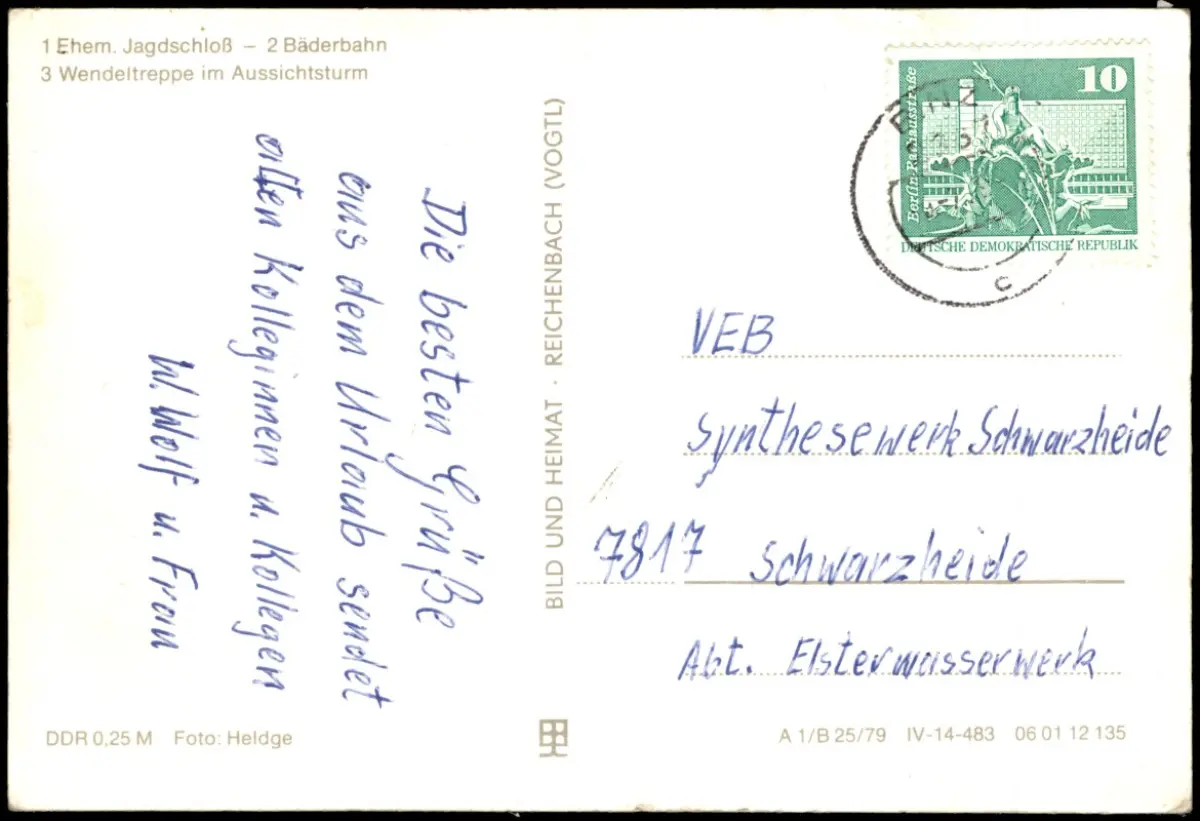 1 Ehem. Jagdschloß – 2 Bäderbahn
3 Wendeltreppe im Aussichtsturm
Die besten Grüße
aus dem Urlaub sendet
allen Kolleginnen u. Kollegen
W. Wolf u. Frau
BILD UND HEIMAT · REICHENBACH (VOGTL)
10
Berlin-Rathausstraße
DEUTSCHE DEMOKRATISCHE REPUBLIK
BINZ
c
VEB
Synthesewerk Schwarzheide
7817 Schwarzheide
Abt. Elsterwasserwerk
DDR 0,25 M Foto: Heldge
A 1/B 25/79 IV-14-483 06 01 12 135